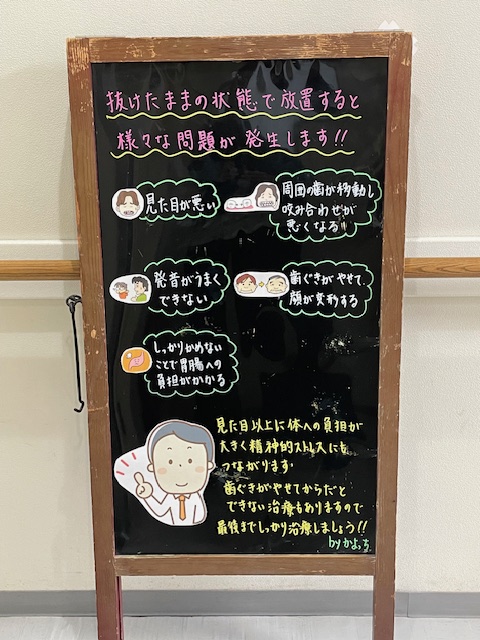 抜けたままの状態で放置すると
様々な問題が発生します!!
見た目が悪い
周囲の歯が移動し
咬み合わせが
悪くなる!!
発音がうまく
できない
歯ぐきがやせて、
顔が変形する
しっかりかめない
ことで胃腸への
負担がかかる
見た目以上に体への負担が
大きく精神的ストレスにも
つながります。
歯ぐきがやせてからだと
できない治療もありますので
最後までしっかり治療しましょう!!
byかよっち